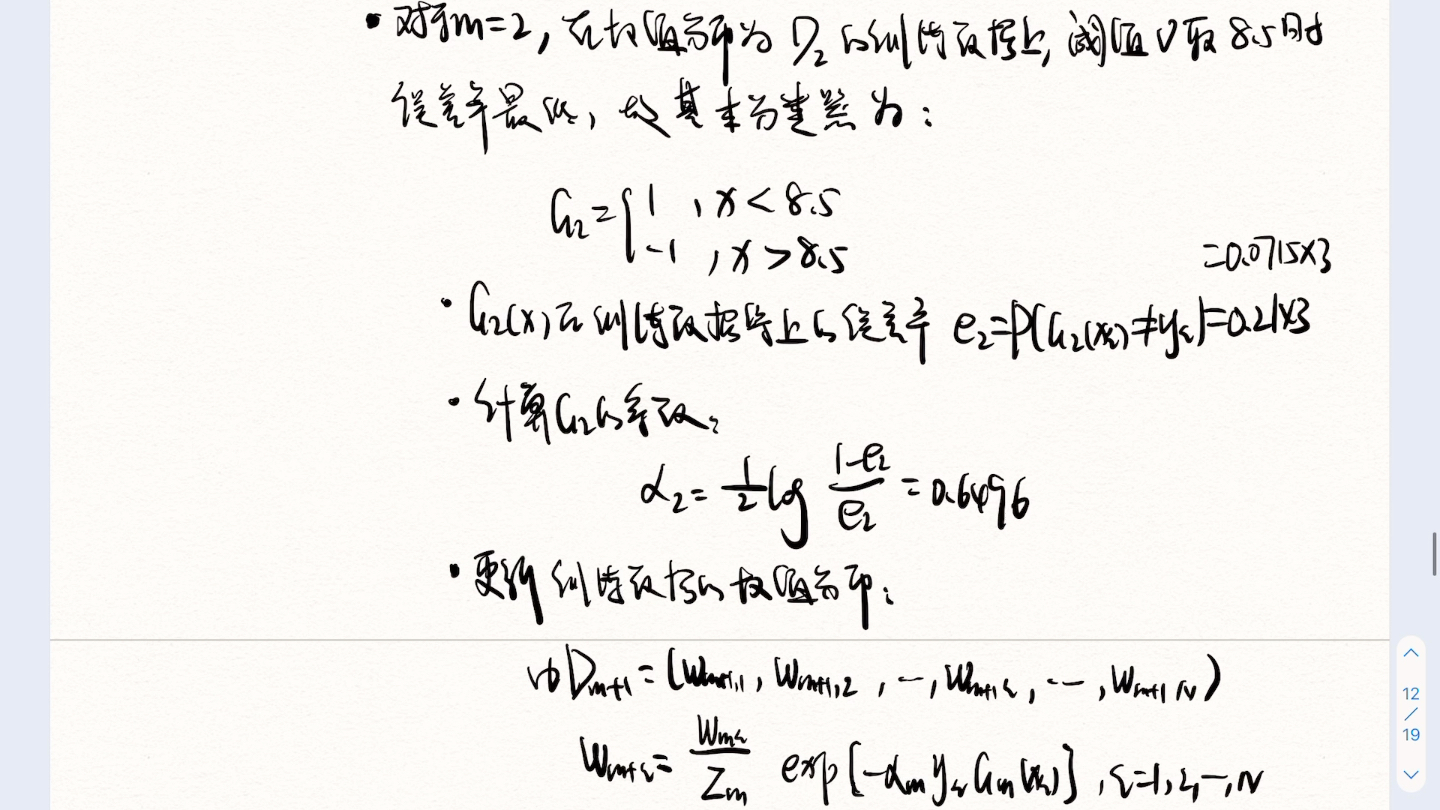 • 对于m=2, 在权值分布为D₂的训练数据上, 阈值v取8.5时
误差率最低, 故基本分类器为:
G₂={1 , x<8.5
-1 , x>8.5
=0.0715×3
• G₂(x)在训练数据集上的误差率 e₂=P(G₂(xᵢ)≠yᵢ)=0.2143
• 计算G₂的系数:
α₂= 1/2 log (1-e₂)/e₂ = 0.6496
• 更新训练数据的权值分布:
由Dₘ₊₁=(wₘ₊₁,₁, wₘ₊₁,₂, …, wₘ₊₁,ᵢ, …, wₘ₊₁,N)
wₘ₊₁,ᵢ= wₘᵢ/Zₘ exp[-αₘyᵢGₘ(xᵢ)], i=1,2,…,N
12
/
19